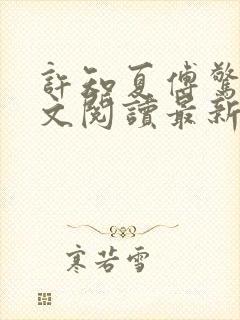 許知夏傅驚
文閱讀最新
寒若雪